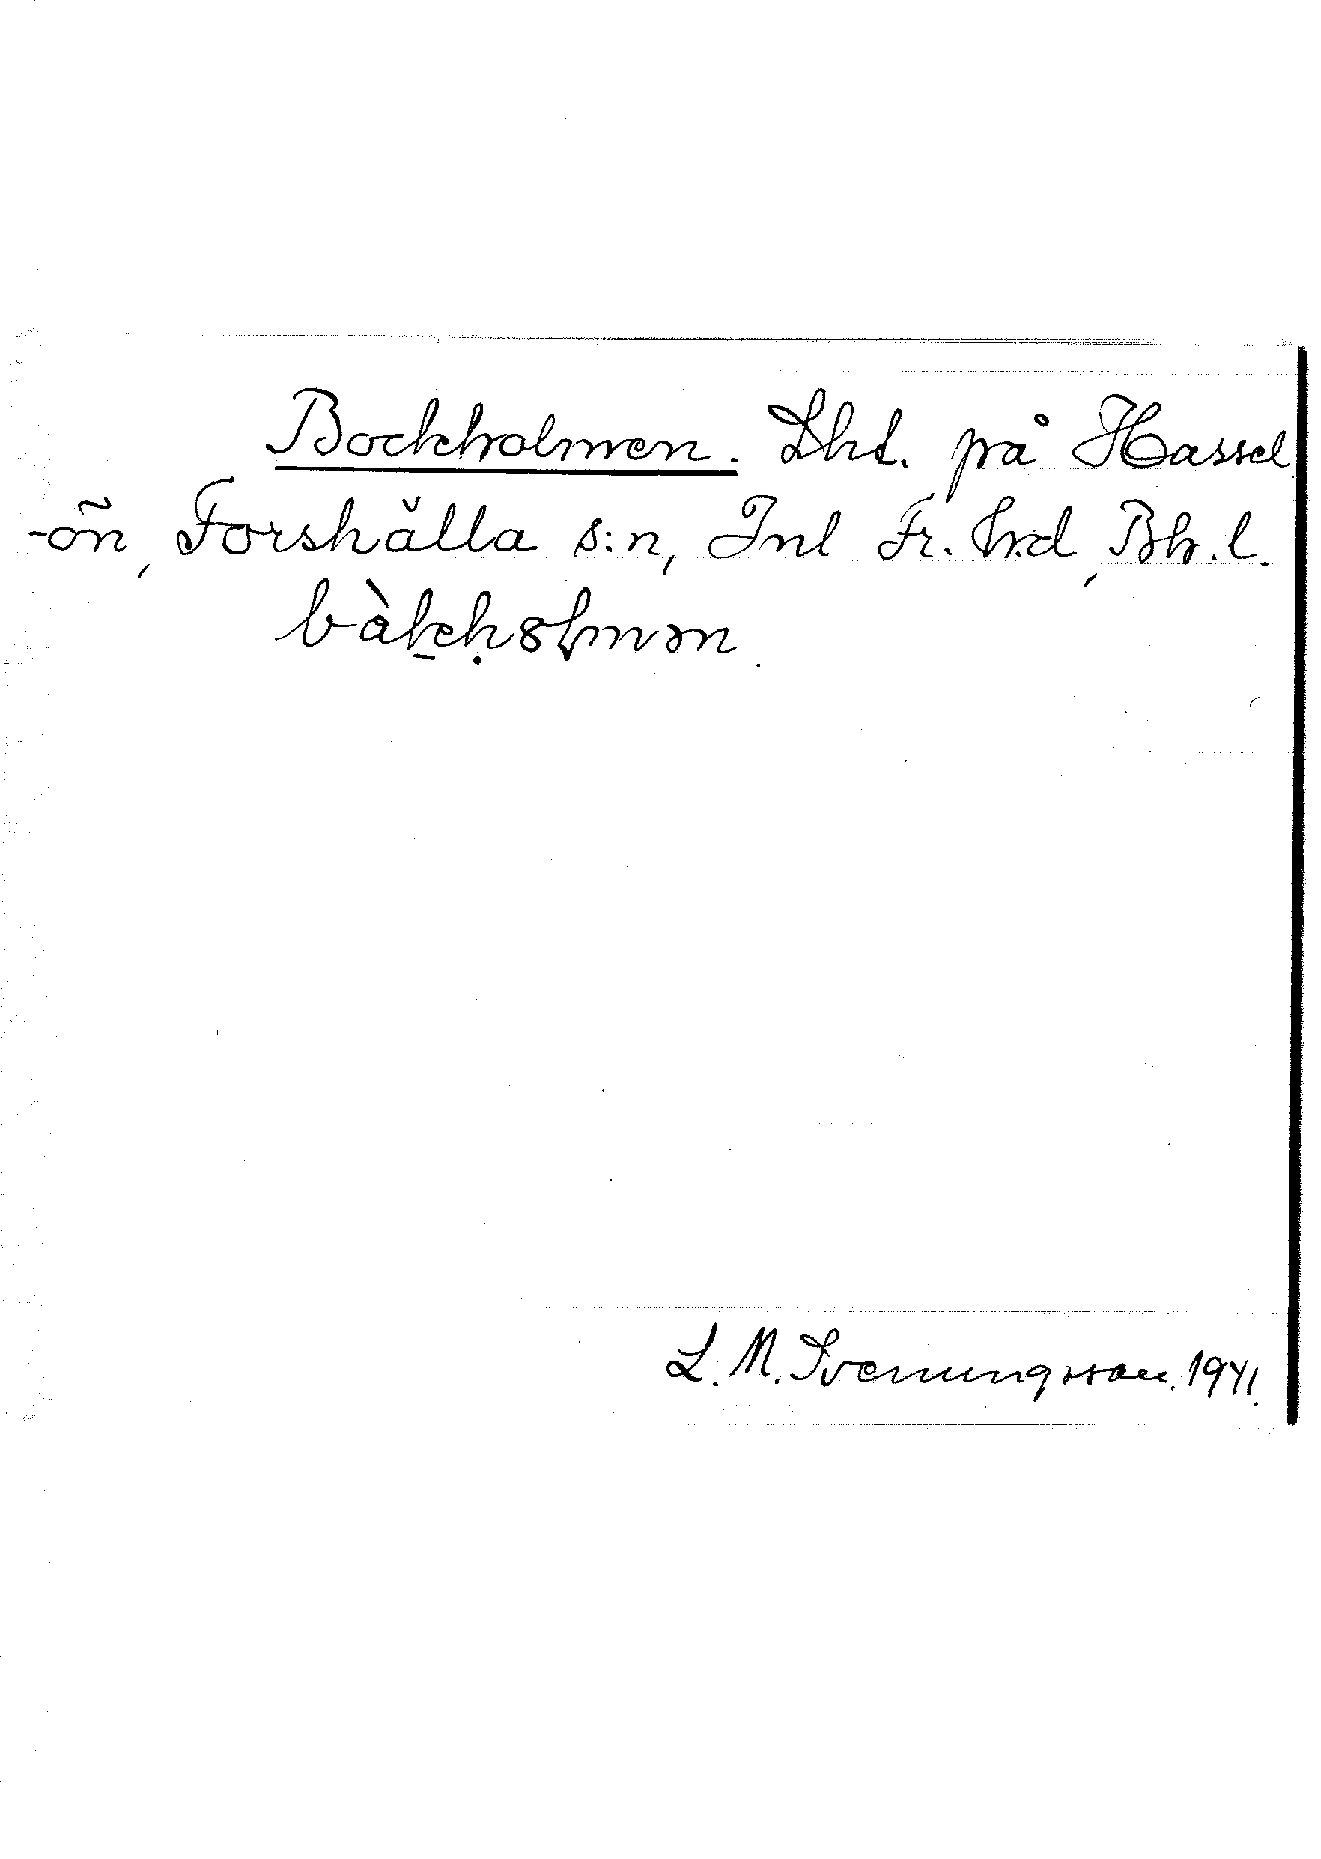 Bockholmen. Lht. på Hassel
-ön, Forshälla s:n, Inl Fr. hd, Bh.l.
L. M. Svenungsson. 1941.